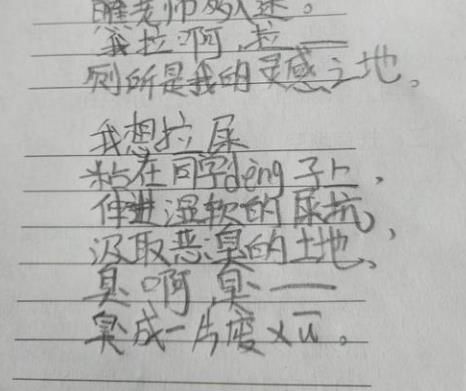 老师入迷。
我拉啊,拉——
厕所是我的灵感之地。
我想拉屎
粘在同学dèng子上,
伸进湿软的屎坑,
汲取恶臭的土地,
臭啊,臭——
臭成一片废xū。